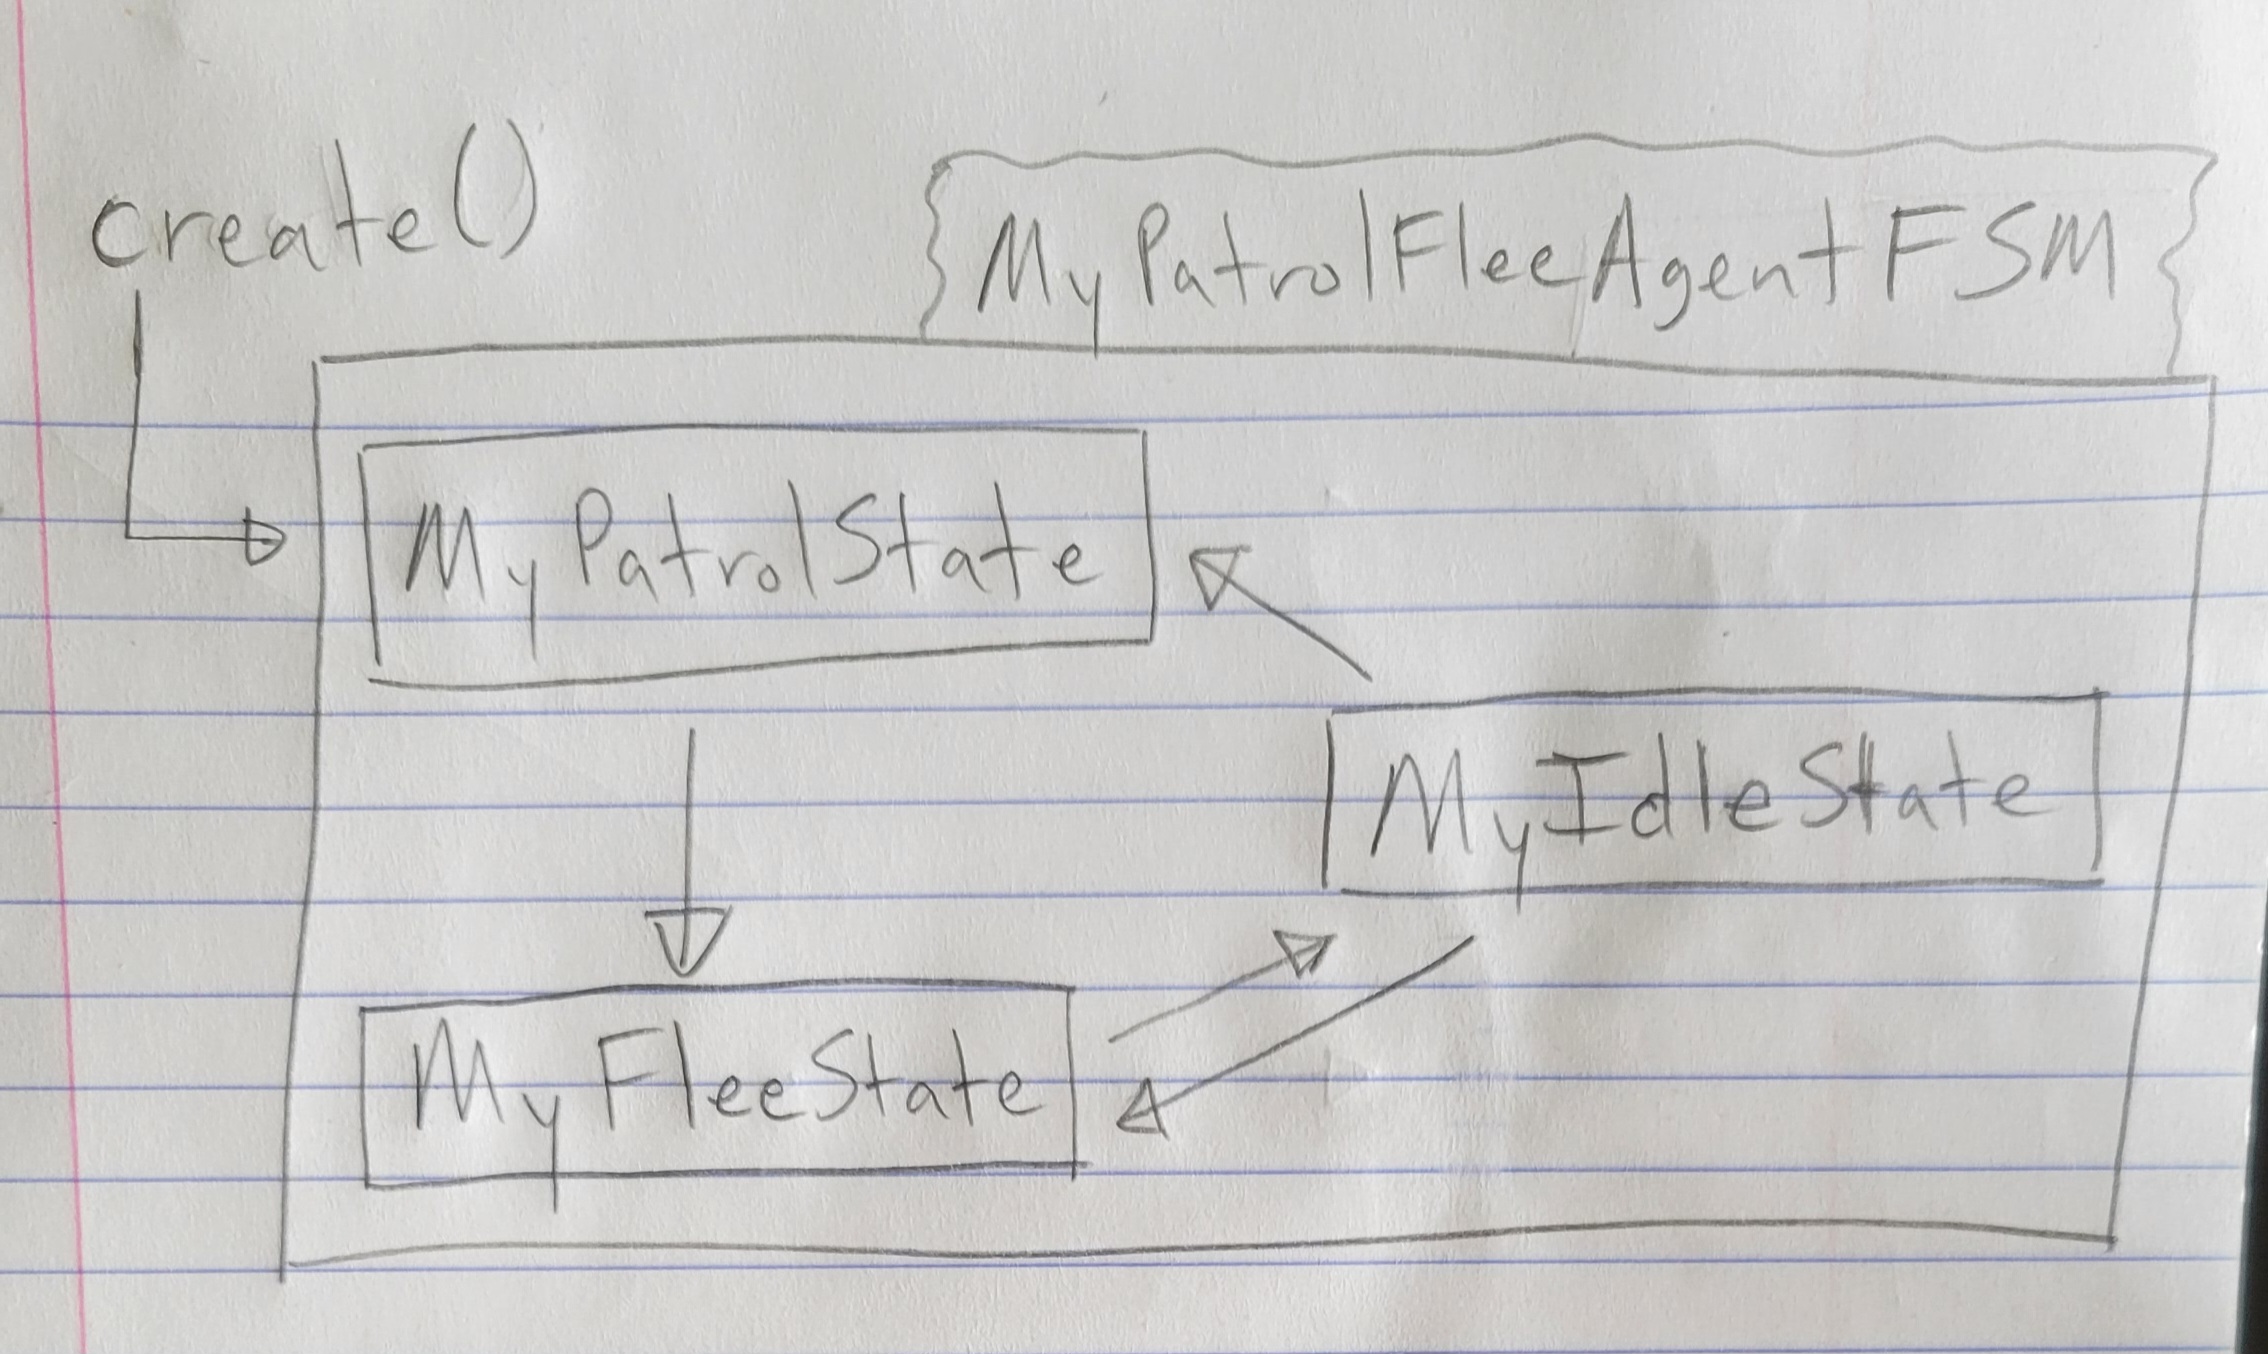 create()
MyPatrolFleeAgentFSM
MyPatrolState
MyIdleState
MyFleeState